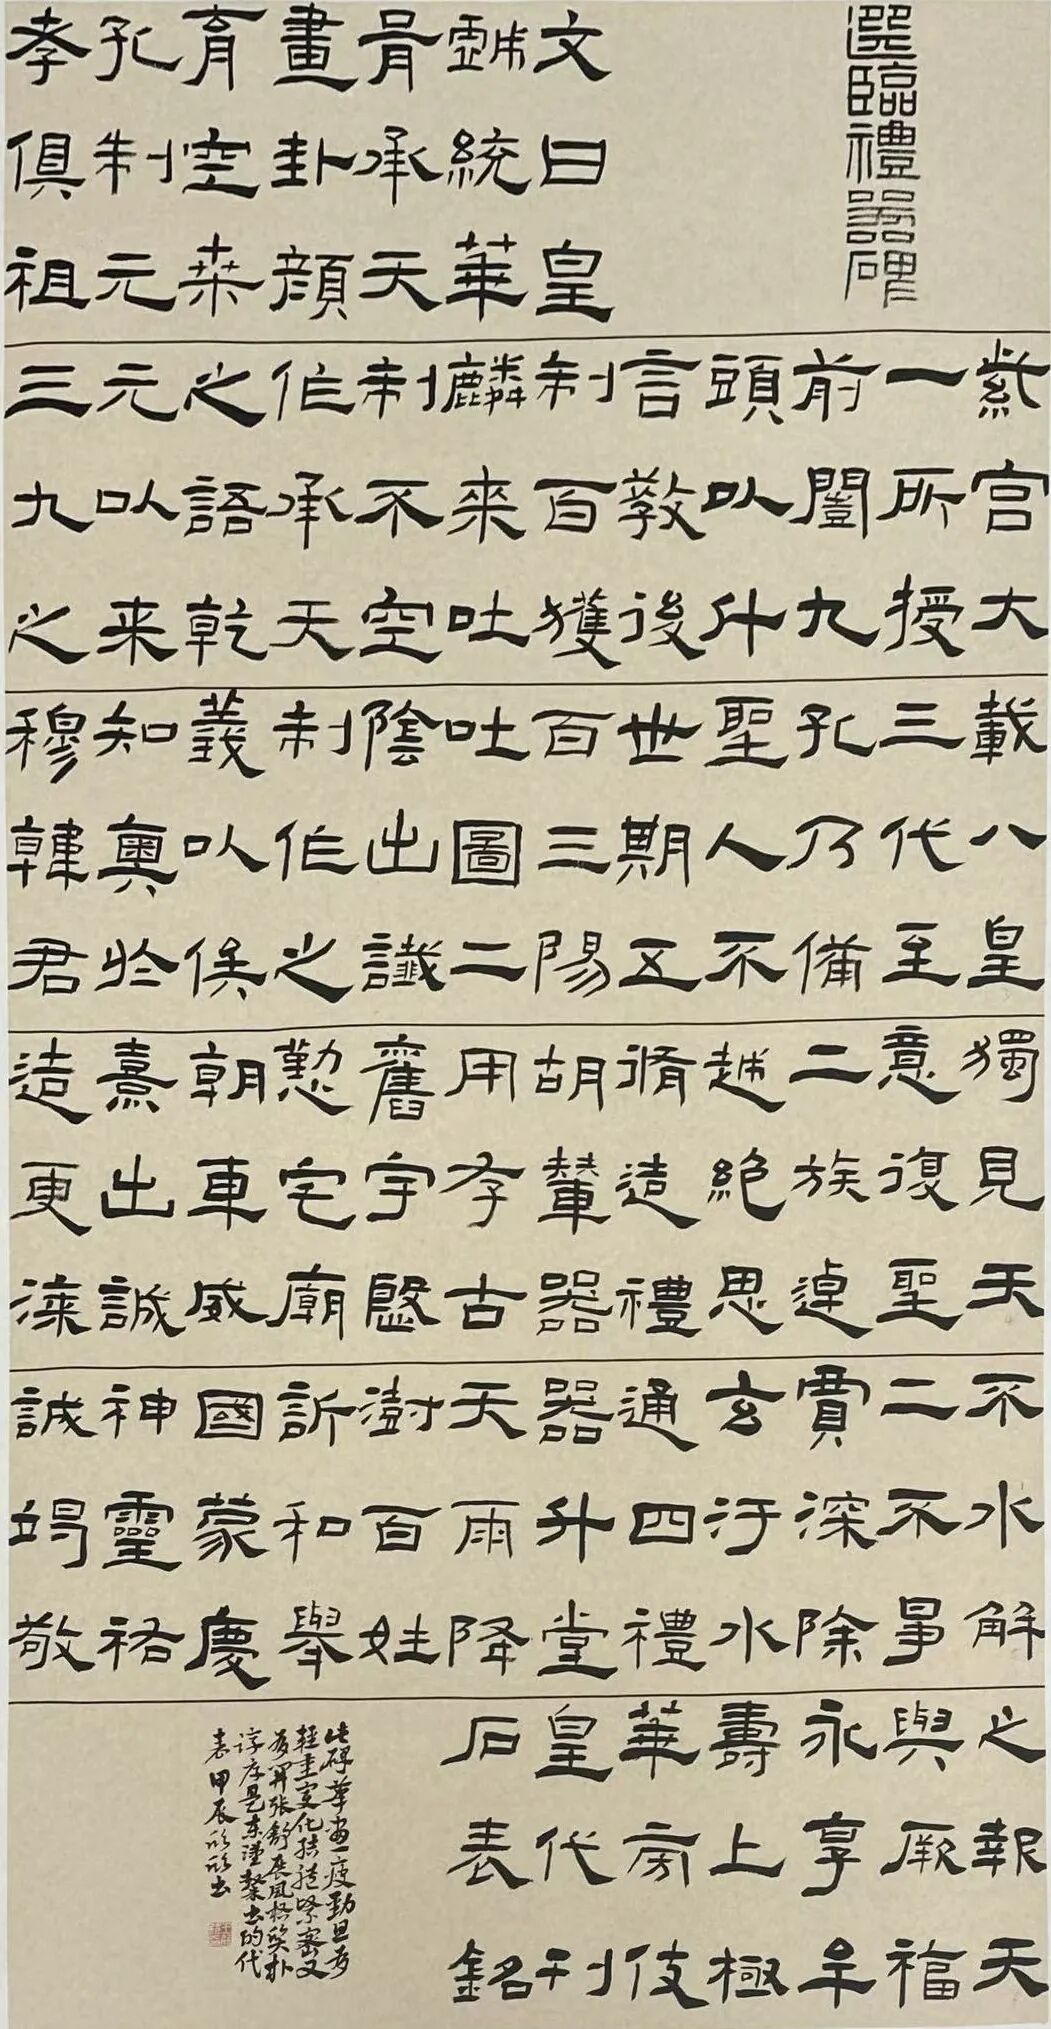 選臨禮器碑
文曰皇
戲統華
胥承天
畫卦顏
育空桑
孔制元
孝俱祖
紫宮大
一所授
前闓九
頭以什
言教後
制百獲
麟來吐
制不空
作承天
之語乾
元以來
三九之
載八皇
三代至
孔乃備
聖人不
世期五
百三陽
吐圖二
陰出讖
制作之
義以俟
知奧於
穆韓君
獨見天
意復聖
二族逴
越絕思
脩造禮
胡輦器
用存古
舊宇慇
懃宅廟
朝車威
熹出誠
造更漆
不水解
二不爭
賈深除
玄汙水
通四禮
器升堂
天雨降
澍百姓
訢和舉
國蒙慶
神靈祐
誠竭敬
之報天
與厥福
永享牟
壽上極
華旁伎
皇代刊
石表銘
此碑筆畫疲勁且有
輕重变化結體緊密又
有開张舒展風格質朴
淳厚是东漢隸书的代
表甲辰欣欣书